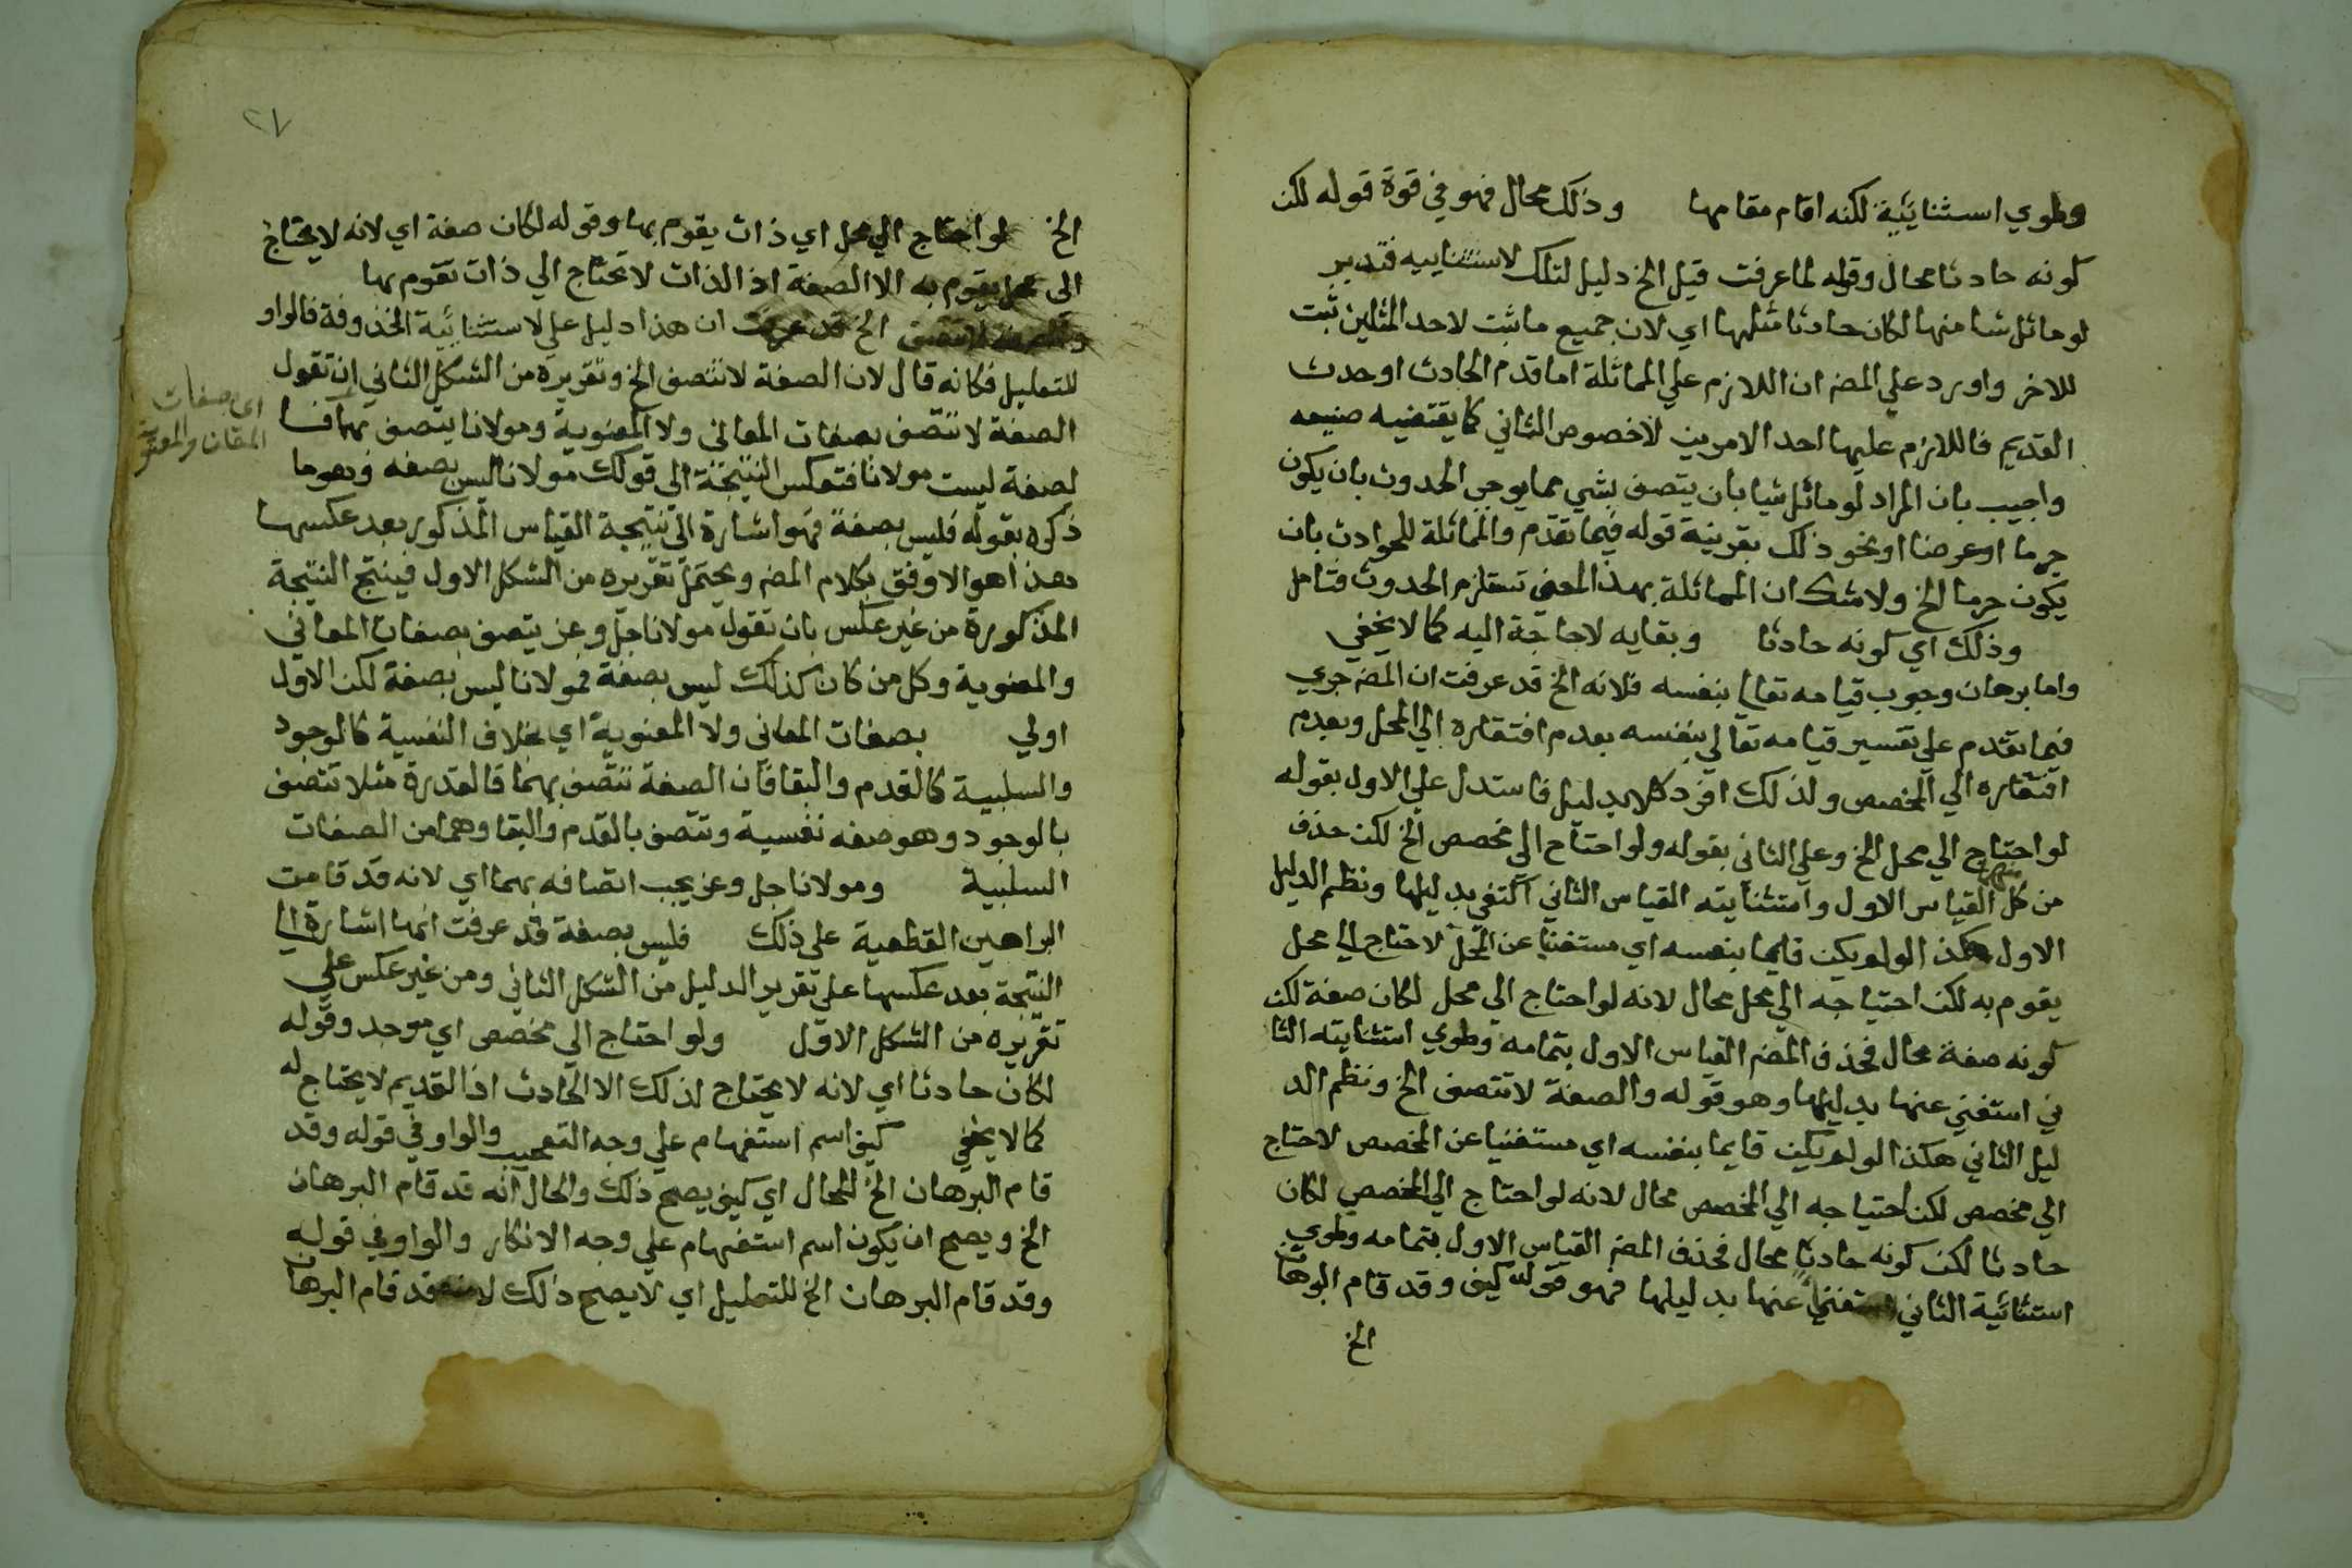 وطوي استثنائية لكنه اقام مقامها وذلك محال فهو في قوة قوله لكن
كونه حادثا محال وقوله لما عرفت قيل الخ دليل لتلك لاستثناييه فتدبر
لو ماثل شا منها لكان حادثا مثلها اي لان جميع ما ثبت لاحد المثلين ثبت
للاخر واورد علي المصـ ان اللازم علي المماثلة اما قدم الحادث او حدث
القديم فاللازم عليها احد الامرين لاخصوص الثاني كما يقتضيه صنيعه
واجيب بان المراد لو ماثل شيا بان يتصف بشي مما يوجب الحدوث بان يكون
جرما او عرضا او نحو ذلك بقرينة قوله فيما تقدم والمماثلة للحوادث بان
يكون جرما الخ ولاشك ان المماثلة بهذا المعني تستلزم الحدوث فتامل
وذلك اي كونه حادثا وبقايه لاحاجة اليه كما لا يخفي
واما برهان وجوب قيامه تعالي بنفسه فلانه الخ قد عرفت ان المصـ جري
فيما تقدم علي تفسير قيامه تعالي بنفسه بعدم افتقاره الي المحل وبعدم
افتقاره الي المخصص ولذلك افرد كلا بدليل فاستدل علي الاول بقوله
لو احتاج الي محل الخ وعلي الثاني بقوله ولو احتاج الي مخصص الخ لكن حذف
من كل القياس الاول واستثنايته القياس الثاني اكتفي بدليلها ونظم الدليل
الاول هكذا لو لم يكن قايما بنفسه اي مستغنيا عن المحل لاحتاج الي محل
يقوم به لكن احتياجه الي محل محال لانه لو احتاج الي محل لكان صفة لكن
كونه صفة محال فحذف المصـ القياس الاول بتمامه وطوي استثنايته الثا
ني استغني عنها بدليلها وهو قوله والصفة لا تتصف الخ ونظم الد
ليل الثاني هكذا لو لم يكن قايما بنفسه اي مستغنيا عن المخصص لاحتاج
الي مخصص لكن احتياجه الي المخصص محال لانه لو احتاج الي المخصص لكان
حادثا لكن كونه حادثا محال فحذف المصـ القياس الاول بتمامه وطوي
استثنائية الثاني استغني عنها بدليلها فهو قوله كيف وقد قام البرهان
الخ
٢٧
الخ لو احتاج الي محل اي ذات يقوم بها وقوله لكان صفة اي لانه لايحتاج
الى محل يقوم به الا الصفة اذ الذات لا تحتاج الي ذات تقوم بها
والصفة لا تتصف الخ قد عرفت ان هذا دليل علي لاستثنائية المحذوفة فالواو
للتعليل فكانه قال لان الصفة لا تتصف الخ وتقريره من الشكل الثاني ان تقول
الصفة لا تتصف بصفات المعاني ولا المعنوية ومولانا يتصف بهما فا
لصفة ليست مولانا فتعكس النتيجة الى قولك مولانا ليس بصفه وهو ما
ذكره بقوله فليس بصفة فهو اشارة الي نتيجة القياس المذكور بعد عكسها
هذا هو الاوفق بكلام المصـ ويحتمل تقريره من الشكل الاول فينتج النتيجة
المذكورة من غير عكس بان تقول مولانا جل وعز يتصف بصفات المعاني
والمعنوية وكل من كان كذلك ليس بصفة فمولانا ليس بصفة لكن الاول
اولي بصفات المعاني ولا المعنوية اي بخلاف النفسية كالوجود
والسلبية كالقدم والبقا فان الصفة تتصف بهما فالقدرة مثلا تتصف
بالوجود وهو صفه نفسية وتتصف بالقدم والبقا وهما من الصفات
السلبية ومولانا جل وعز يجب اتصافه بهما اي لانه قد قامت
البراهين القطعية على ذلك فليس بصفة قد عرفت انها اشارة الي
النتيجة بعد عكسها على تقرير الدليل من الشكل الثاني ومن غير عكس علي
تقريره من الشكل الاول ولو احتاج الي مخصص اي موجد وقوله
لكان حادثا اي لانه لا يحتاج لذلك الا الحادث اذ القديم لايحتاج له
كما لا يخفي كيف اسم استفهام علي وجه التعجيب والواو في قوله وقد
قام البرهان الخ للحال اي كيف يصح ذلك والحال انه قد قام البرهان
الخ ويصح ان يكون اسم استفهام علي وجه الانكار والواو في قوله
وقد قام البرهان الخ للتعليل اي لا يصح ذلك لانه قد قام البرهان
اي صفات